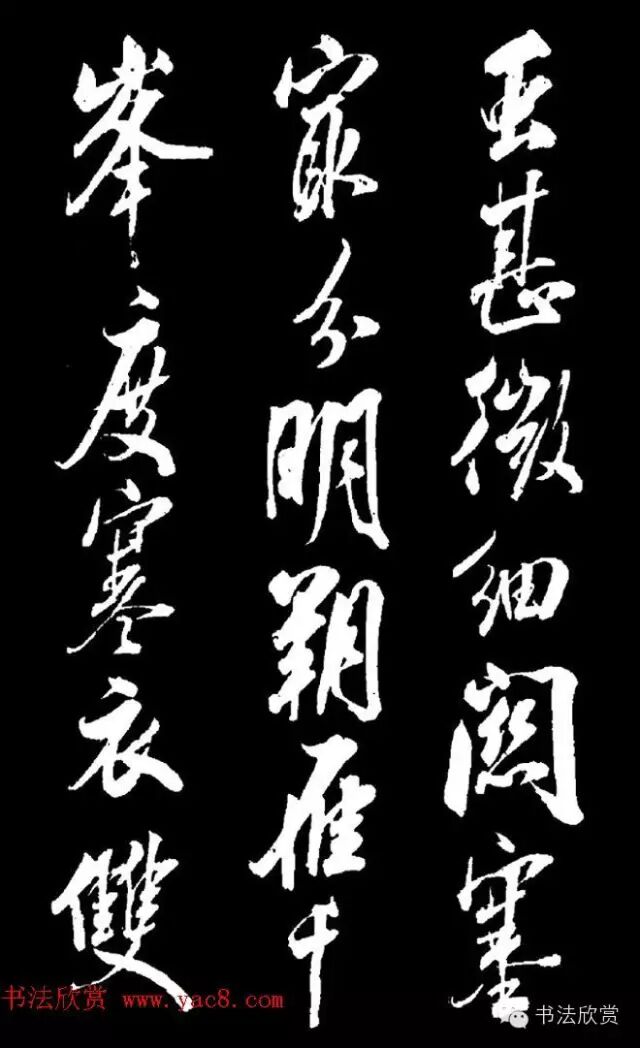 甚微細關塞
㝡分明朔雁千
峯度寒衣雙
书法欣赏 www.yac8.com
书法欣赏